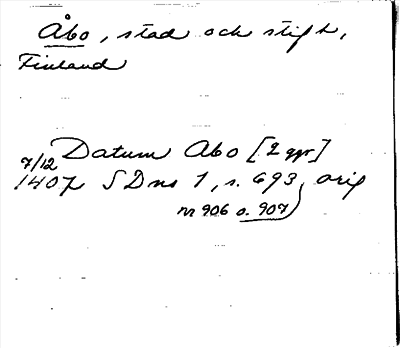 Åbo, stad och stift,
Finland
Datum Abo [2 ggr]
7/12
1407 SDns 1, s. 693, orig
nr 906 o. 907